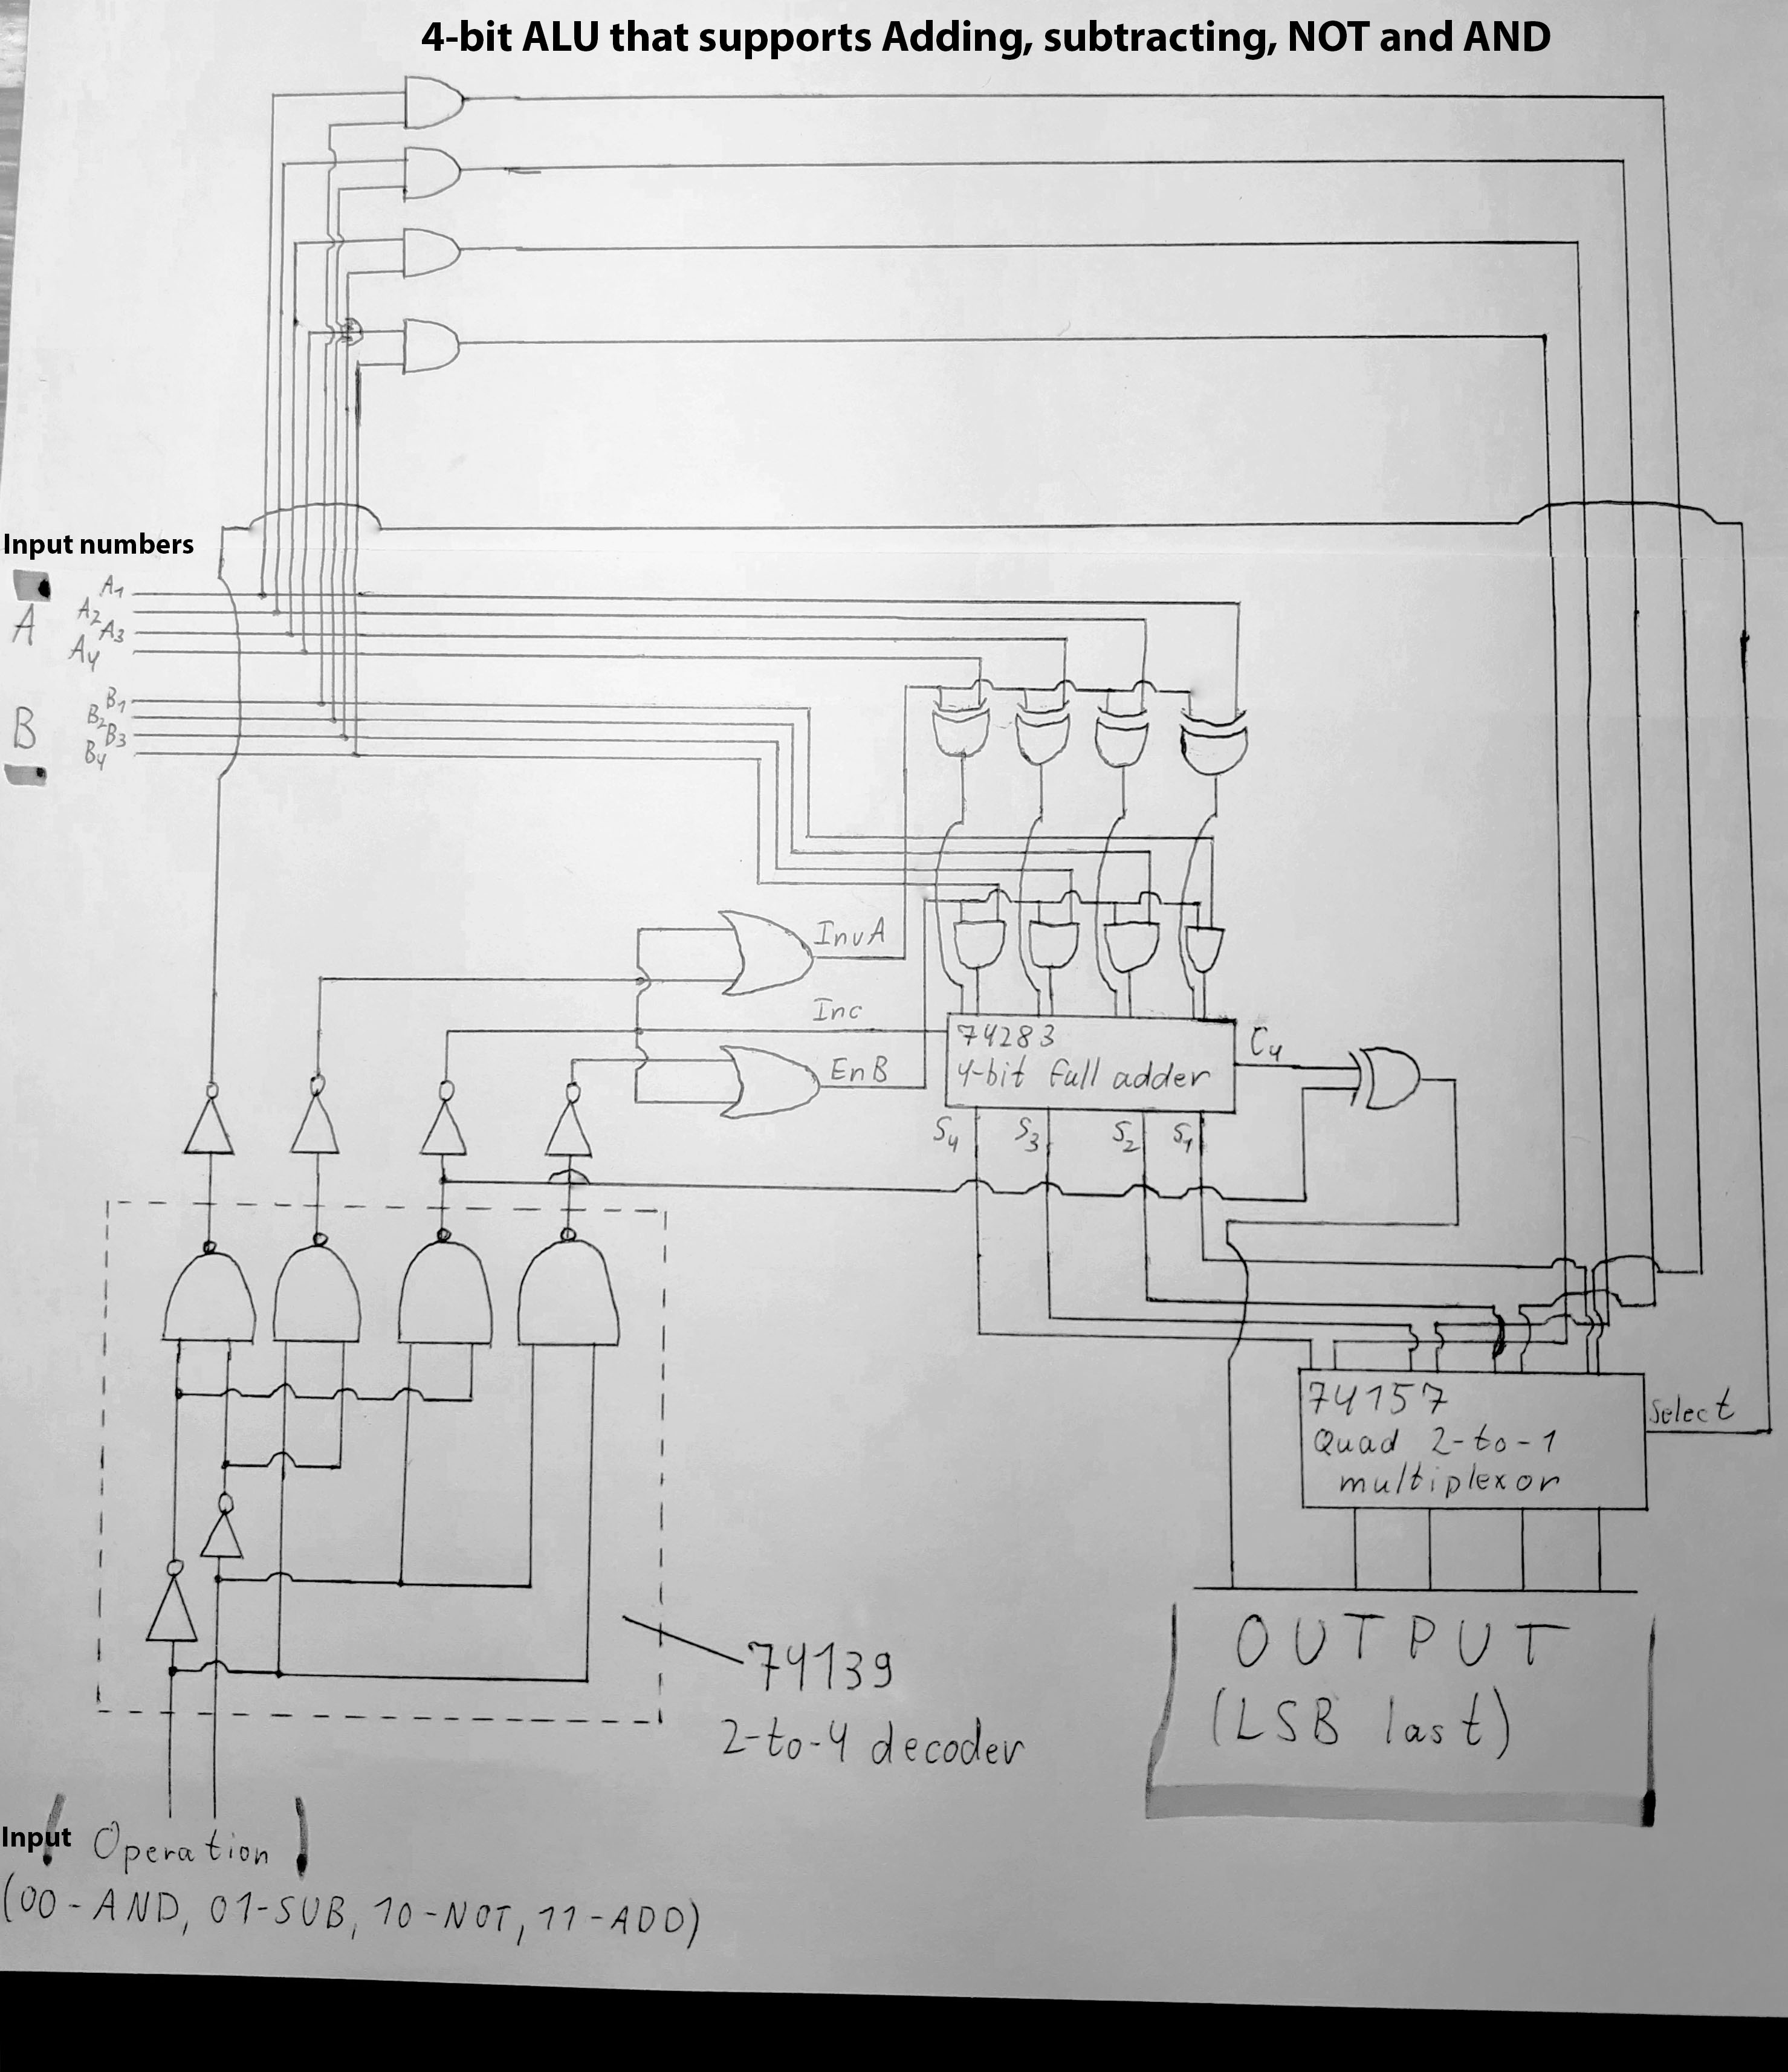 4-bit ALU that supports Adding, subtracting, NOT and AND
Input numbers
A
A1
A2
A3
A4
B
B1
B2
B3
B4
InvA
Inc
EnB
74283
4-bit full adder
C4
S4 S3 S2 S1
74157
Quad 2-to-1
multiplexor
Select
OUTPUT
(LSB last)
74139
2-to-4 decoder
Input Operation
(00-AND, 01-SUB, 10-NOT, 11-ADD)